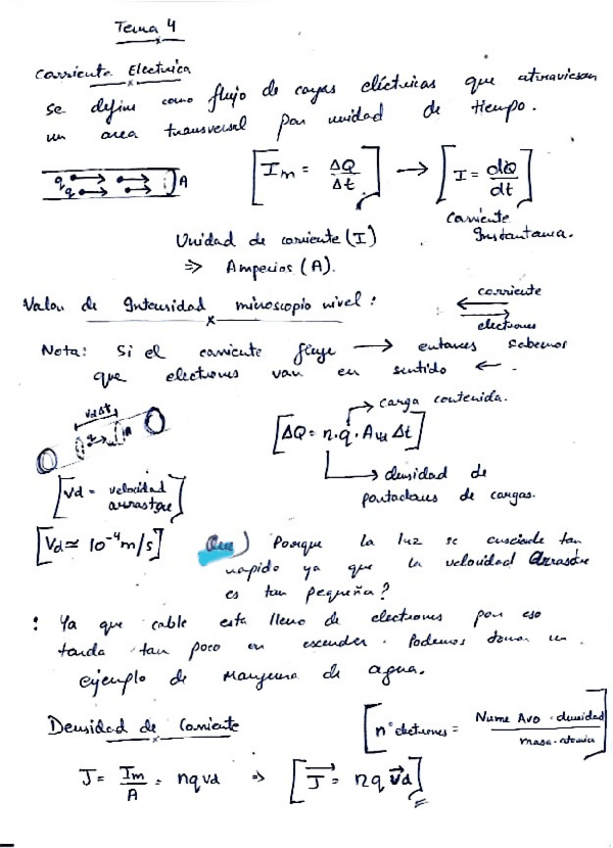 Tema 4
Corriente Electrica
se define como flujo de cargas eléctricas que atraviesan
un area transversal por unidad de tiempo.
q q A
[Im = ΔQ/Δt] → [I = dQ/dt]
Corriente
Instantanea.
Unidad de corriente (I)
=> Amperios (A).
Valor de Intensidad microscopio nivel:
corriente ←
electrones →
Nota: Si el corriente fluye → entonces sabemos
que electrones van en sentido ←.
Vd Δt
[ΔQ = n·q·A Vd Δt]
carga contenida.
densidad de
portadores de cargas.
[Vd = velocidad
arrastre]
[Vd ≃ 10⁻⁴ m/s]
Porque la luz se enciende tan
rapido ya que la velocidad arrastre
es tan pequeña?
: Ya que cable esta lleno de electrones por eso
tarda tan poco en encender. Podemos tomar un
ejemplo de manguera de agua.
Densidad de Corriente
[n° electrones = Nume Avo · densidad / masa atomica]
J = Im/A = nqvd => [J⃗ = nq v⃗d]